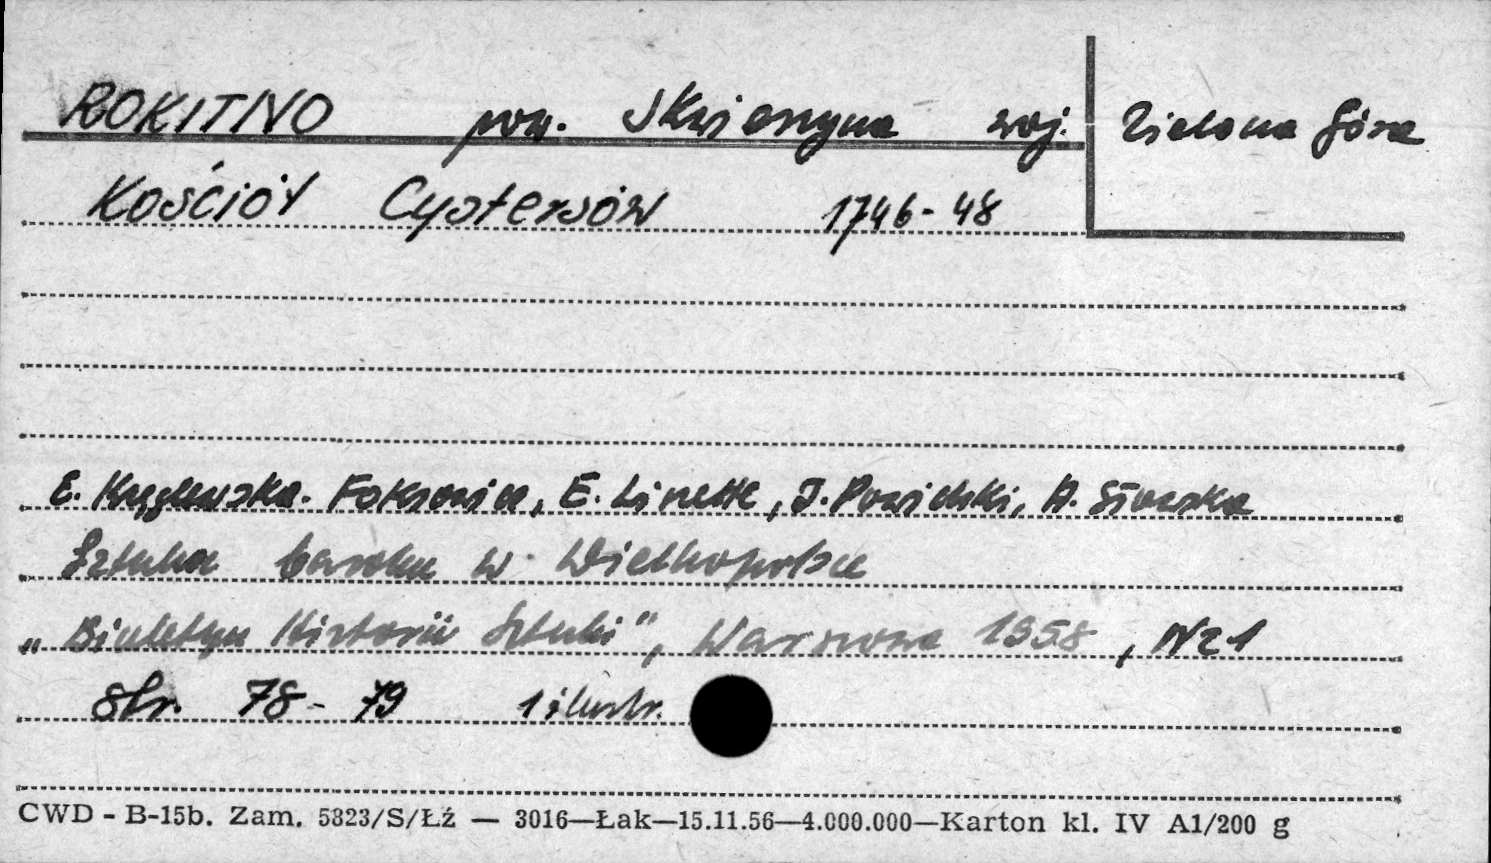 ROKITNO pow. Skwierzyna woj. Zielona Góra
Kościół Cystersów 1746-48
E. Kręglewska-Foksowicz, E. Linette, J. Powidzki, A. Sławska
Sztuka baroku w Wielkopolsce
„Biuletyn Historii Sztuki", Warszawa 1958, Nr 1
Str. 78-79 1 ilustr.
CWD - B-15b. Zam. 5823/S/Łź — 3016—Łak—15.11.56—4.000.000—Karton kl. IV A1/200 g